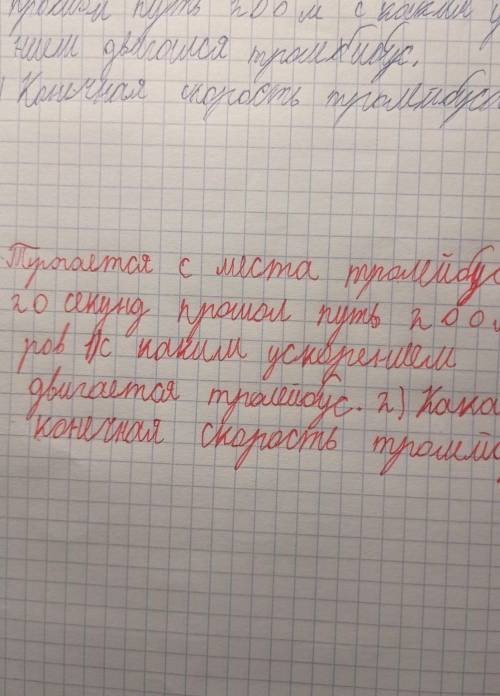 прошол путь 200 м с каким у
нием двигался тролейбус.
Конечная скорость тролейбуса
Трогается с места тролейбус
20 секунд прошол путь 200м
ров 1) с каким ускорением
двигается тролейбус. 2) Кака
конечная скорость тролле